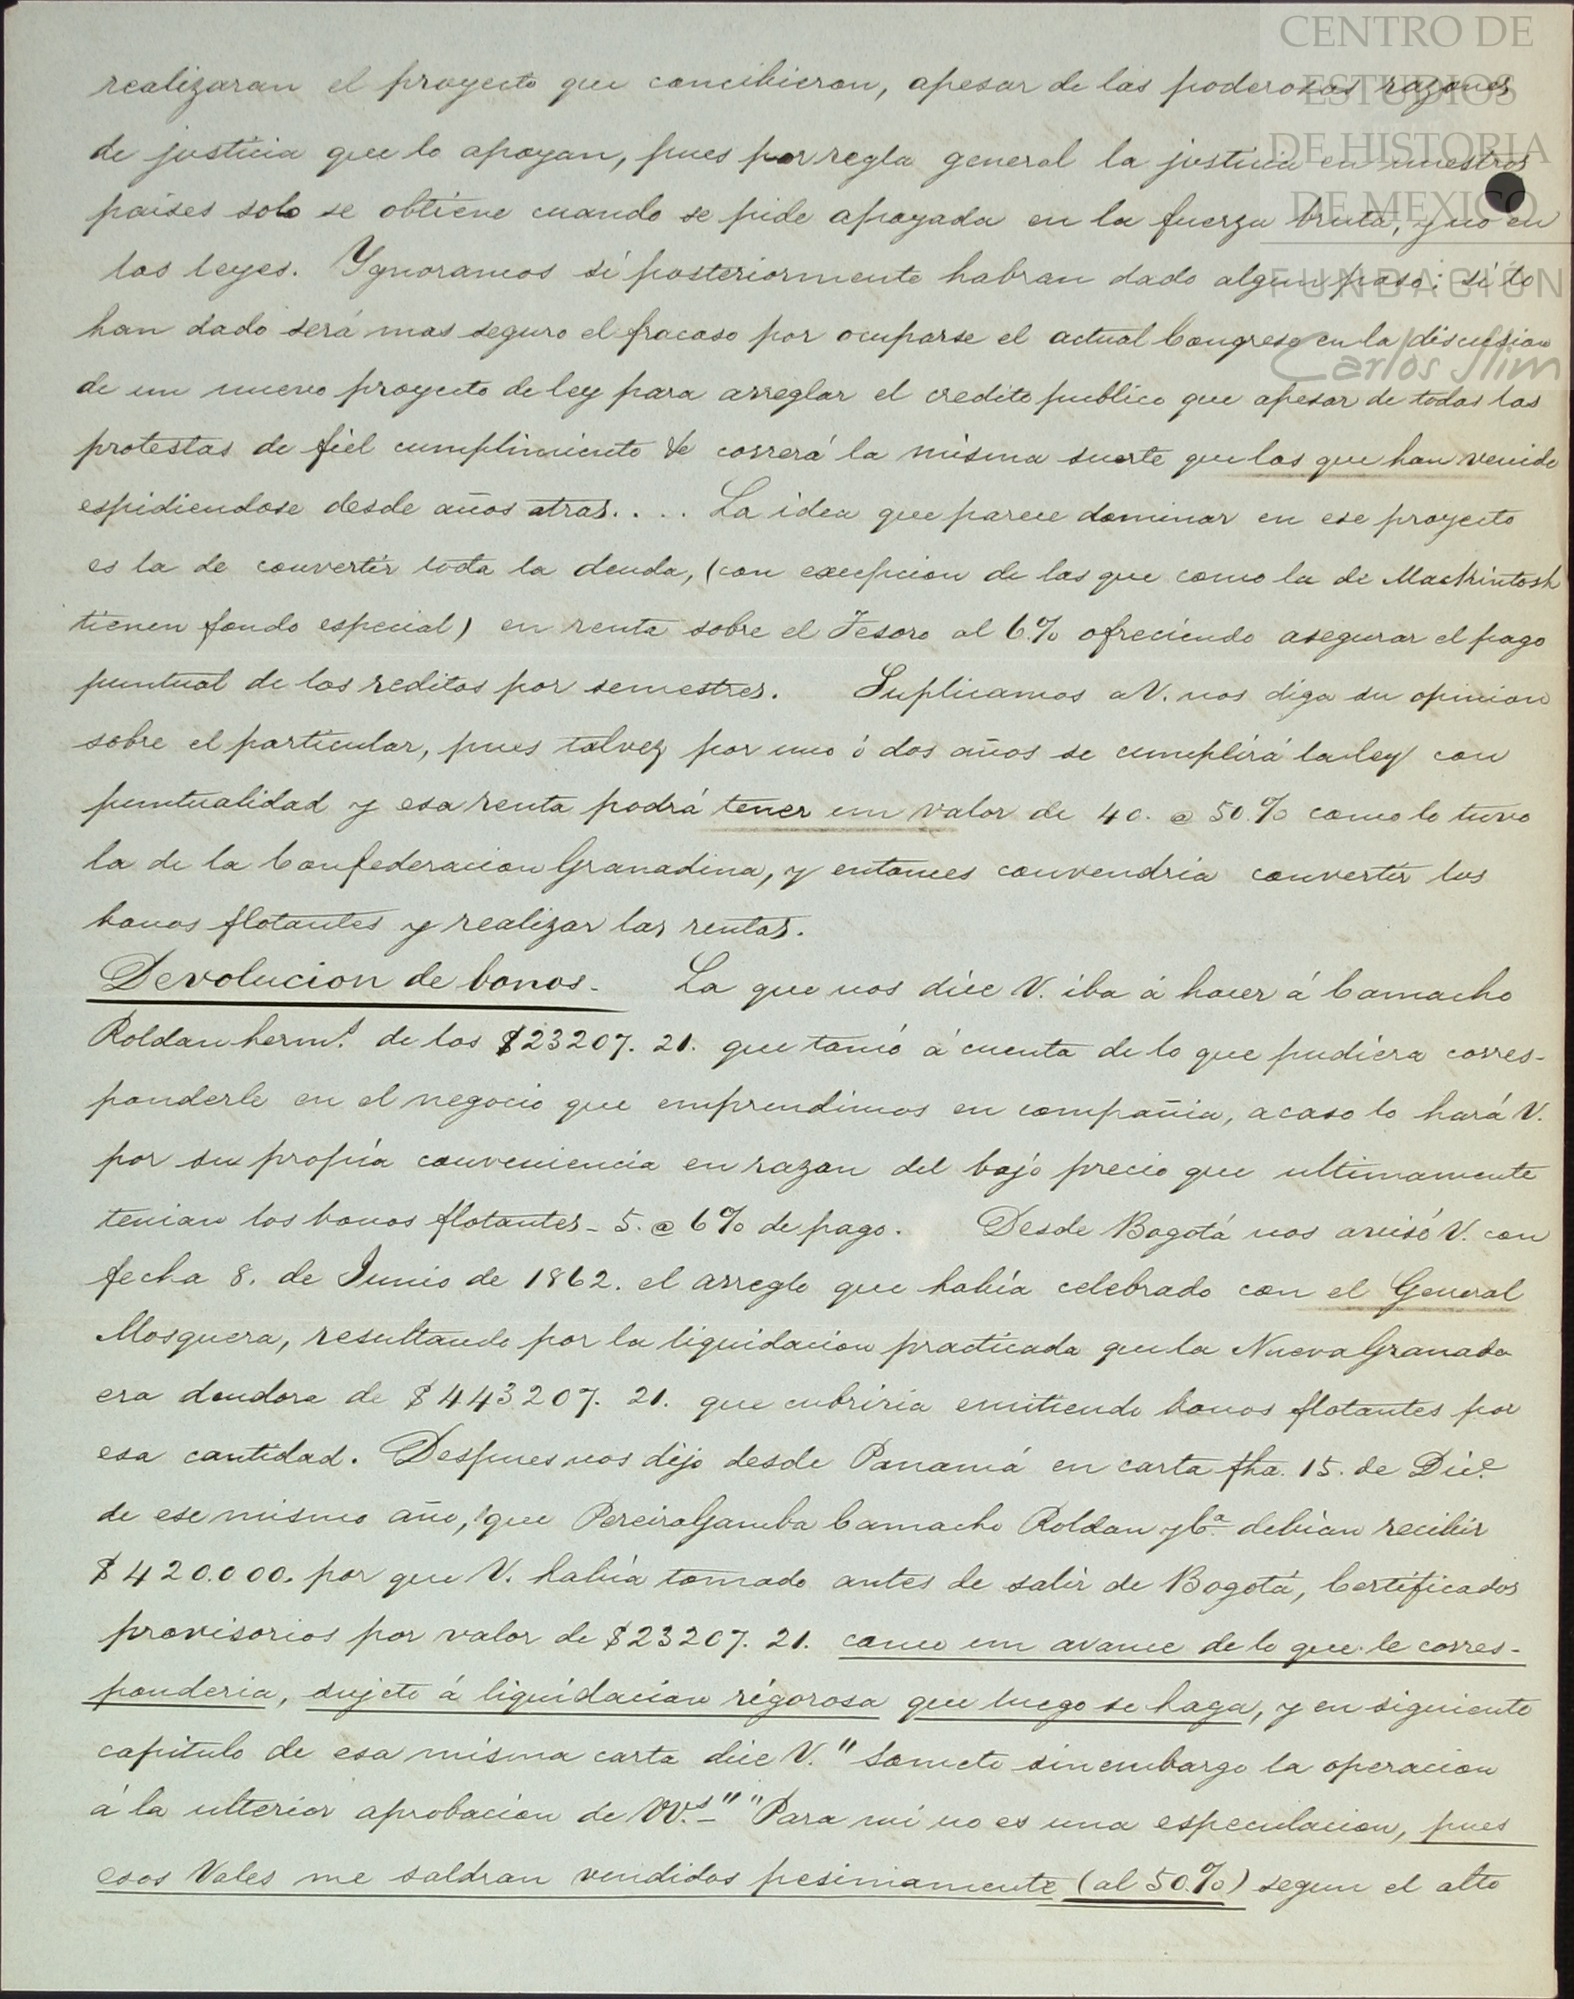 CENTRO DE
ESTUDIOS
DE HISTORIA
DE MEXICO
FUNDACIÓN
Carlos Slim
realizaran el proyecto que concibieron, apesar de las poderosas razones
de justicia que lo apoyan, pues por regla general la justicia en nuestros
paises solo se obtiene cuando se pide apoyada en la fuerza bruta, y no en
las leyes. Ygnoramos si posteriormente habran dado algun paso; si lo
han dado será mas seguro el fracaso por ocuparse el actual Congreso en la discusion
de un nuevo proyecto de ley para arreglar el credito publico que apesar de todas las
protestas de fiel cumplimiento &c correrá la misma suerte que las que han venido
espidiendose desde años atras.... La idea que parece dominar en ese proyecto
es la de convertir toda la deuda, (con excepcion de las que como la de Mackintosh
tienen fondo especial) en renta sobre el Tesoro al 6.% ofreciendo asegurar el pago
puntual de los reditos por semestres. Suplicamos a V. nos diga su opinion
sobre el particular, pues talvez por uno ó dos años se cumplirá la ley con
puntualidad y esa renta podrá tener un valor de 40. @ 50.% como lo tuvo
la de la Confederacion Granadina, y entonces convendria convertir los
bonos flotantes y realizar las rentas.
Devolucion de bonos- La que nos dice V. iba á hacer á Camacho
Roldan herm.s de los $23207. 21. que tomó á cuenta de lo que pudiera corres-
ponderle en el negocio que emprendimos en compañia, acaso lo hará V.
por su propia conveniencia en razon del bajo precio que ultimamente
tenian los bonos flotantes- 5. @ 6% de pago. Desde Bogotá nos avisó V. con
fecha 8. de Junio de 1862. el arreglo que habia celebrado con el General
Mosquera, resultando por la liquidacion practicada que la Nueva Granada
era deudora de $443207. 21. que cubriria emitiendo bonos flotantes por
esa cantidad. Despues nos dijo desde Panamá en carta fha. 15. de Dic.e
de ese mismo año, que Pereira Gamba Camacho Roldan y C.a debian recibir
$420.000. por que V. habia tomado antes de salir de Bogotá, Certificados
provisorios por valor de $23207. 21. como un avance de lo que le corres-
ponderia, sujeto á liquidacion rigorosa que luego se haga, y en siguiente
capitulo de esa misma carta dice V. "Someto sin embargo la operacion
á la ulterior aprobacion de VV.s" "Para mi no es una especulacion, pues
esos Vales me saldran vendidos pesimamente (al 50.%) segun el alto